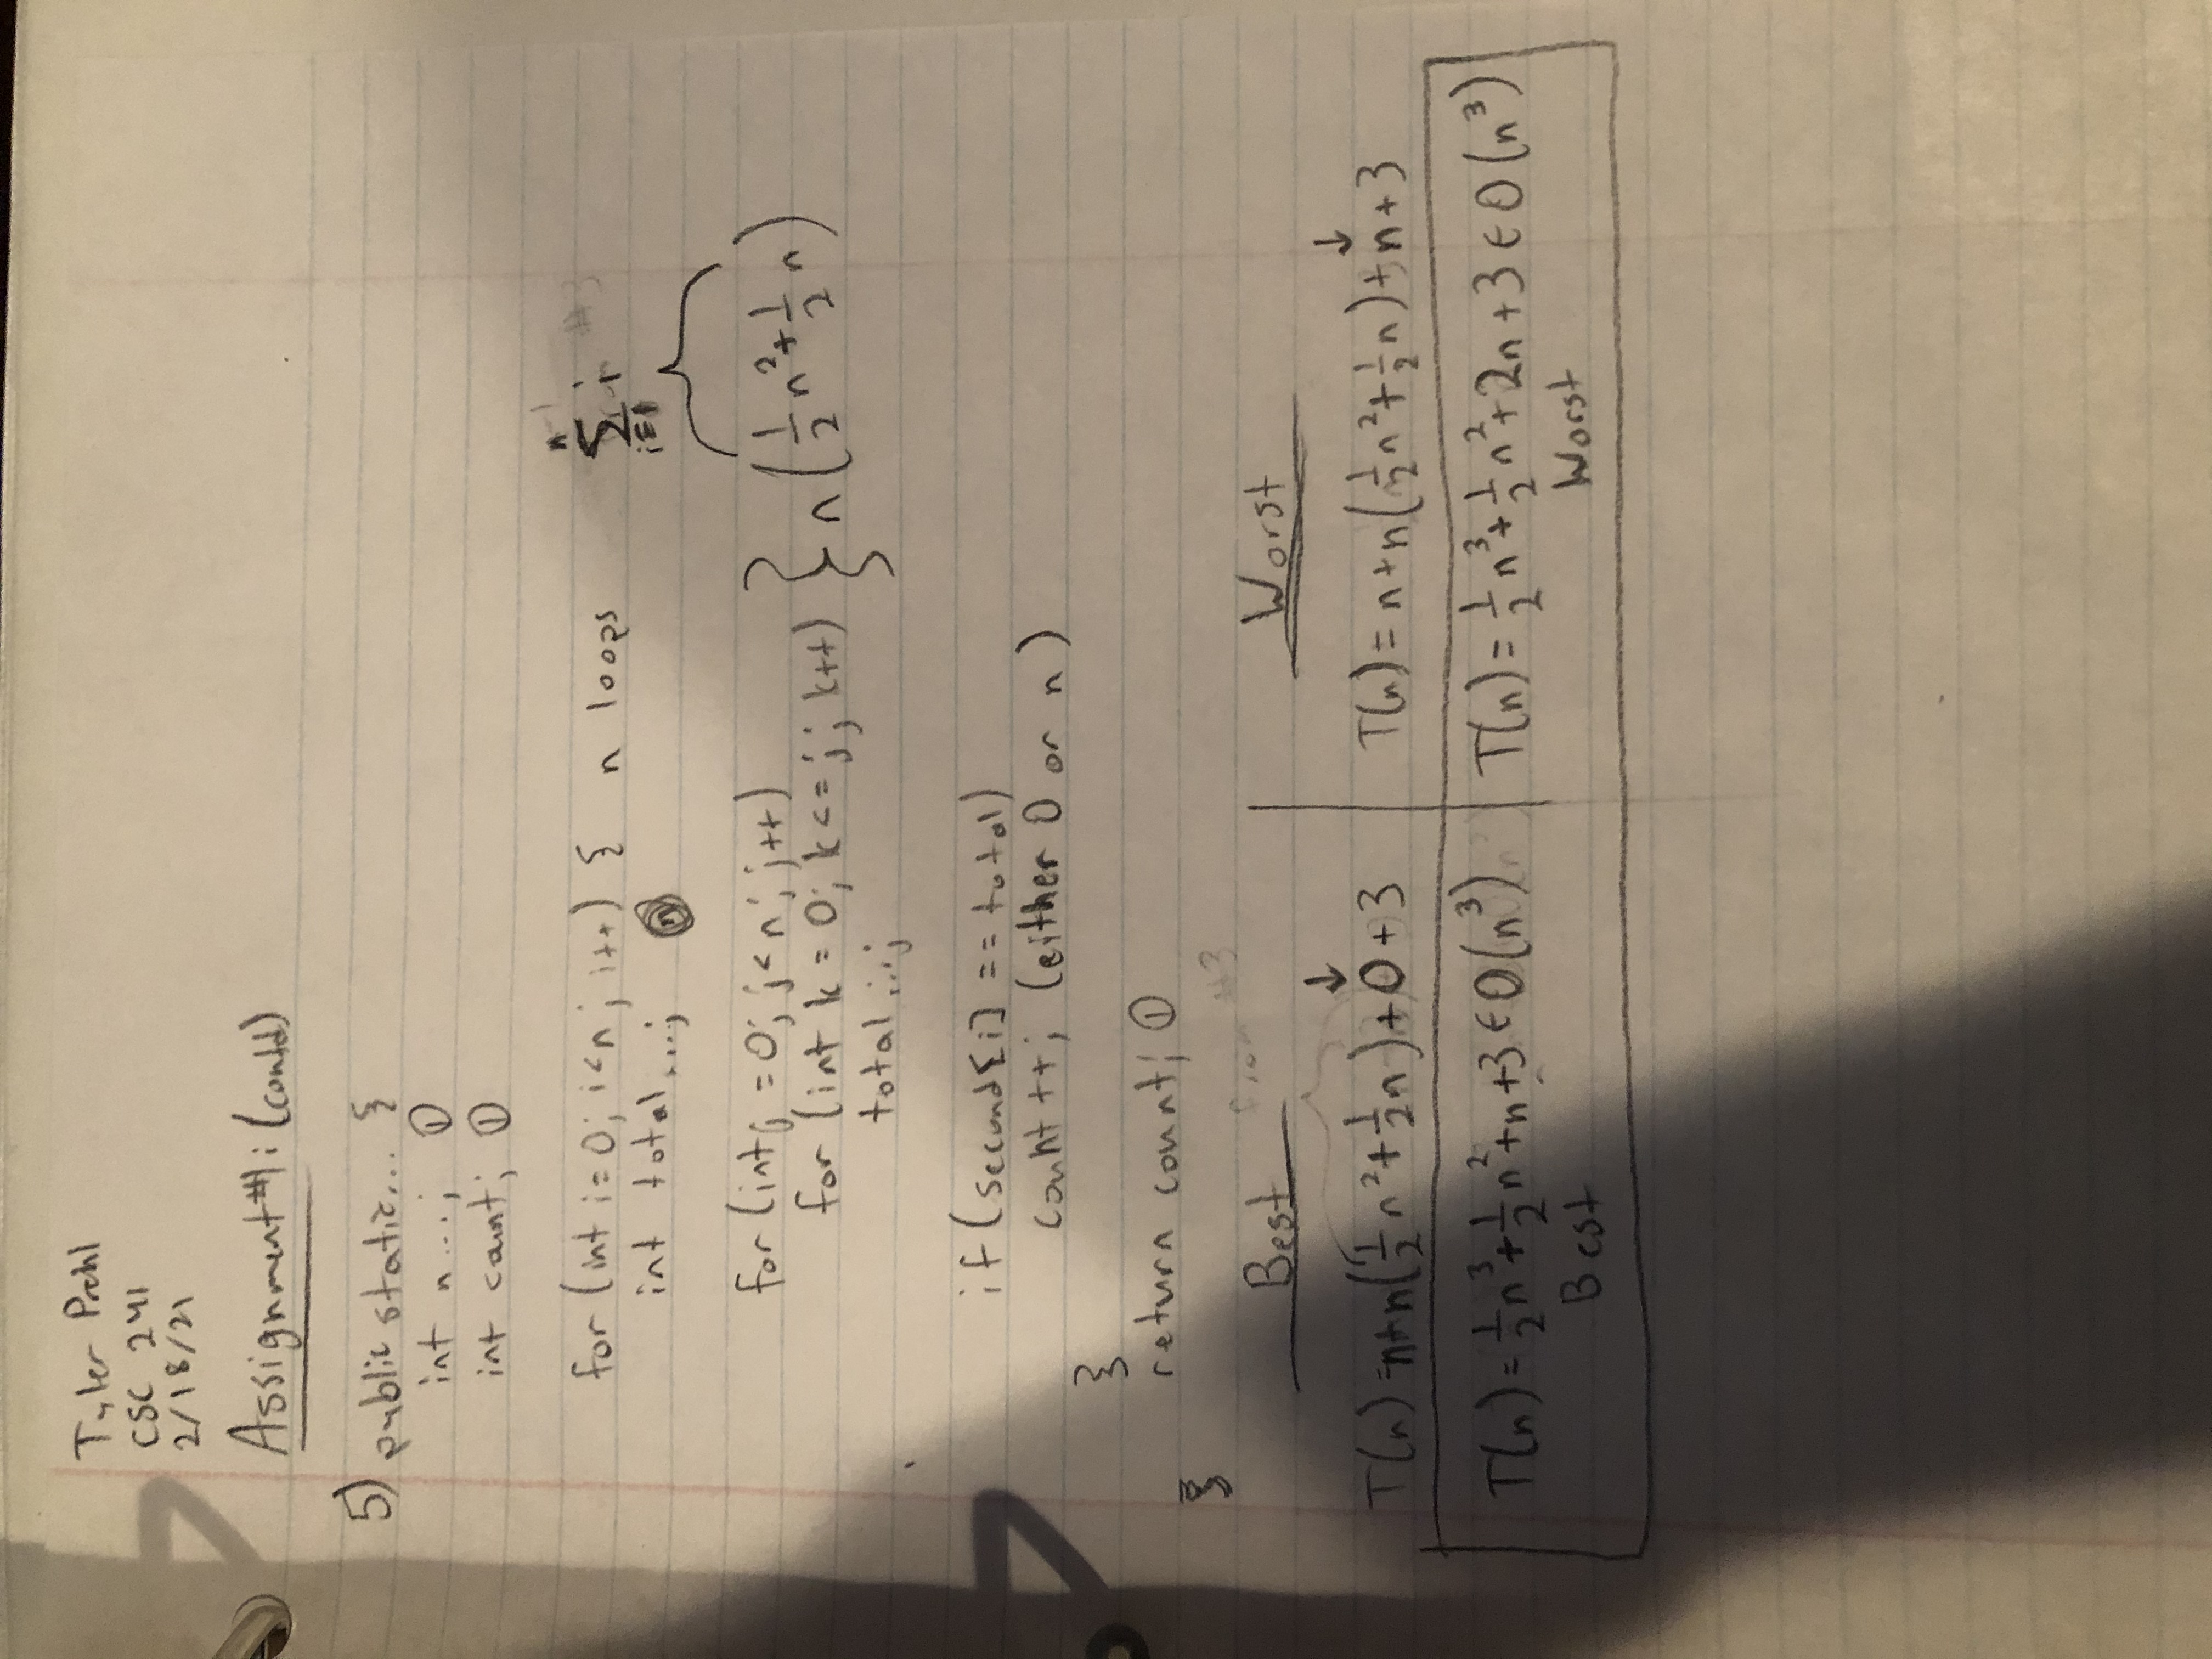 Tyler Prahl
CSC 241
2/18/21
Assignment #1: (contd)
5) public static... {
int n...; ①
int count; ①
for (int i=0; i<n; i++) { n loops
int total...; ⓝ
n
∑ i
i=1
for (int j=0; j<n; j++)
for (int k=0; k<=j; k++) } n(1/2 n² + 1/2 n)
total...;
if (second[i] == total)
count++; (either 0 or n)
}
return count; ①
}
from #3
Best
Worst
↓
T(n)=n+n(1/2 n² + 1/2 n)+0+3
↓
T(n)=n+n(1/2 n² + 1/2 n)+n+3
T(n)=1/2 n³ + 1/2 n² + n + 3 ∈ O(n³)
Best
T(n)=1/2 n³ + 1/2 n² + 2n + 3 ∈ O(n³)
Worst